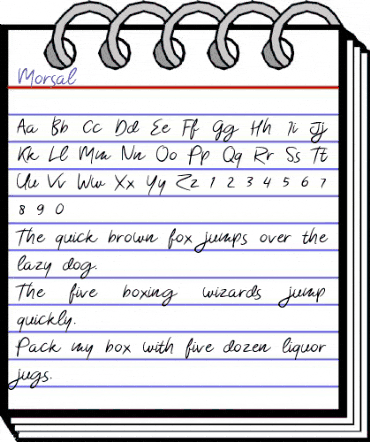 Morsal
Aa Bb Cc Dd Ee Ff Gg Hh Ii Jj
Kk Ll Mm Nn Oo Pp Qq Rr Ss Tt
Uu Vv Ww Xx Yy Zz 1 2 3 4 5 6 7
8 9 0
The quick brown fox jumps over the
lazy dog.
The five boxing wizards jump
quickly.
Pack my box with five dozen liquor
jugs.